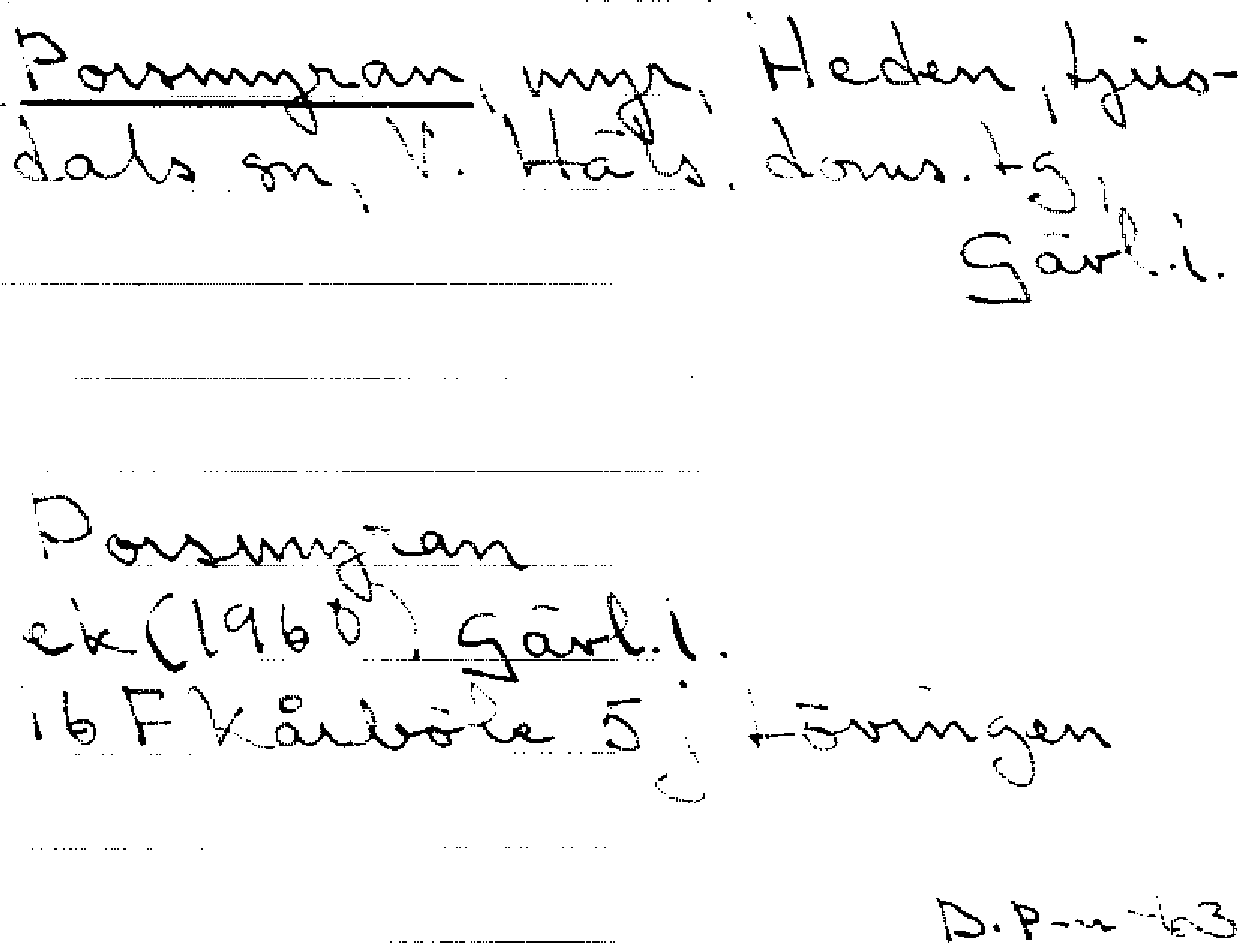 Porsmyran, myr, Heden, Ljus-
dals sn, V. Häls. doms. tg,
Gävl.l.
Porsmyran
ek (1960), Gävl.l.
16 F Kårböle 5 j Lövingen
D.P-n -63